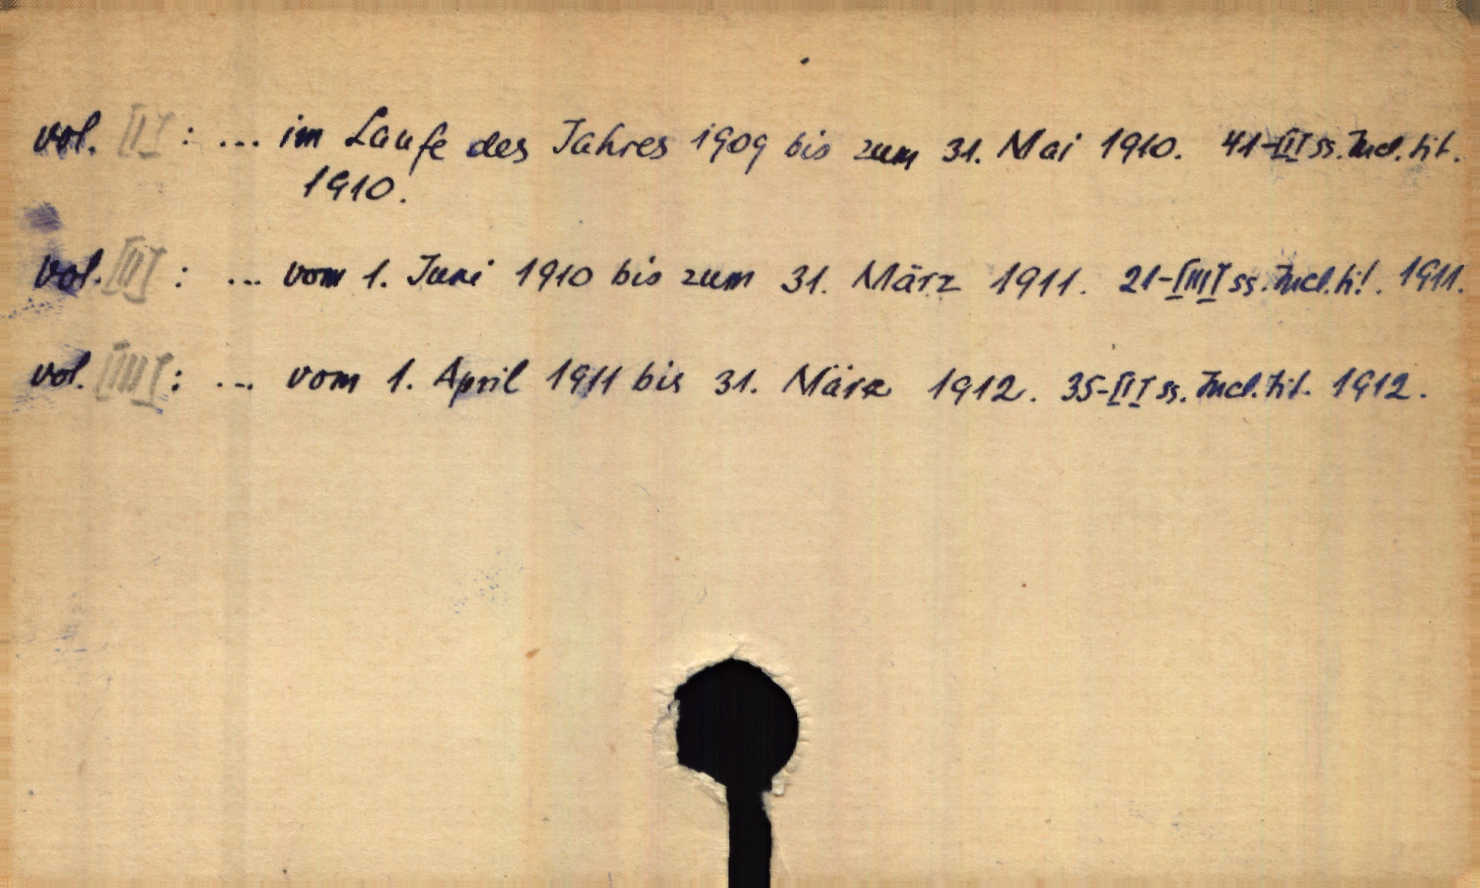 vol. [I] : ... im Laufe des Jahres 1909 bis zum 31. Mai 1910. 41-[I] ss. Incl. tit.
1910.
vol. [II] : ... vom 1. Juni 1910 bis zum 31. März 1911. 21-[III] ss. Incl. tit. 1911.
vol. [III] : ... vom 1. April 1911 bis 31. März 1912. 35-[I] ss. Incl. tit. 1912.